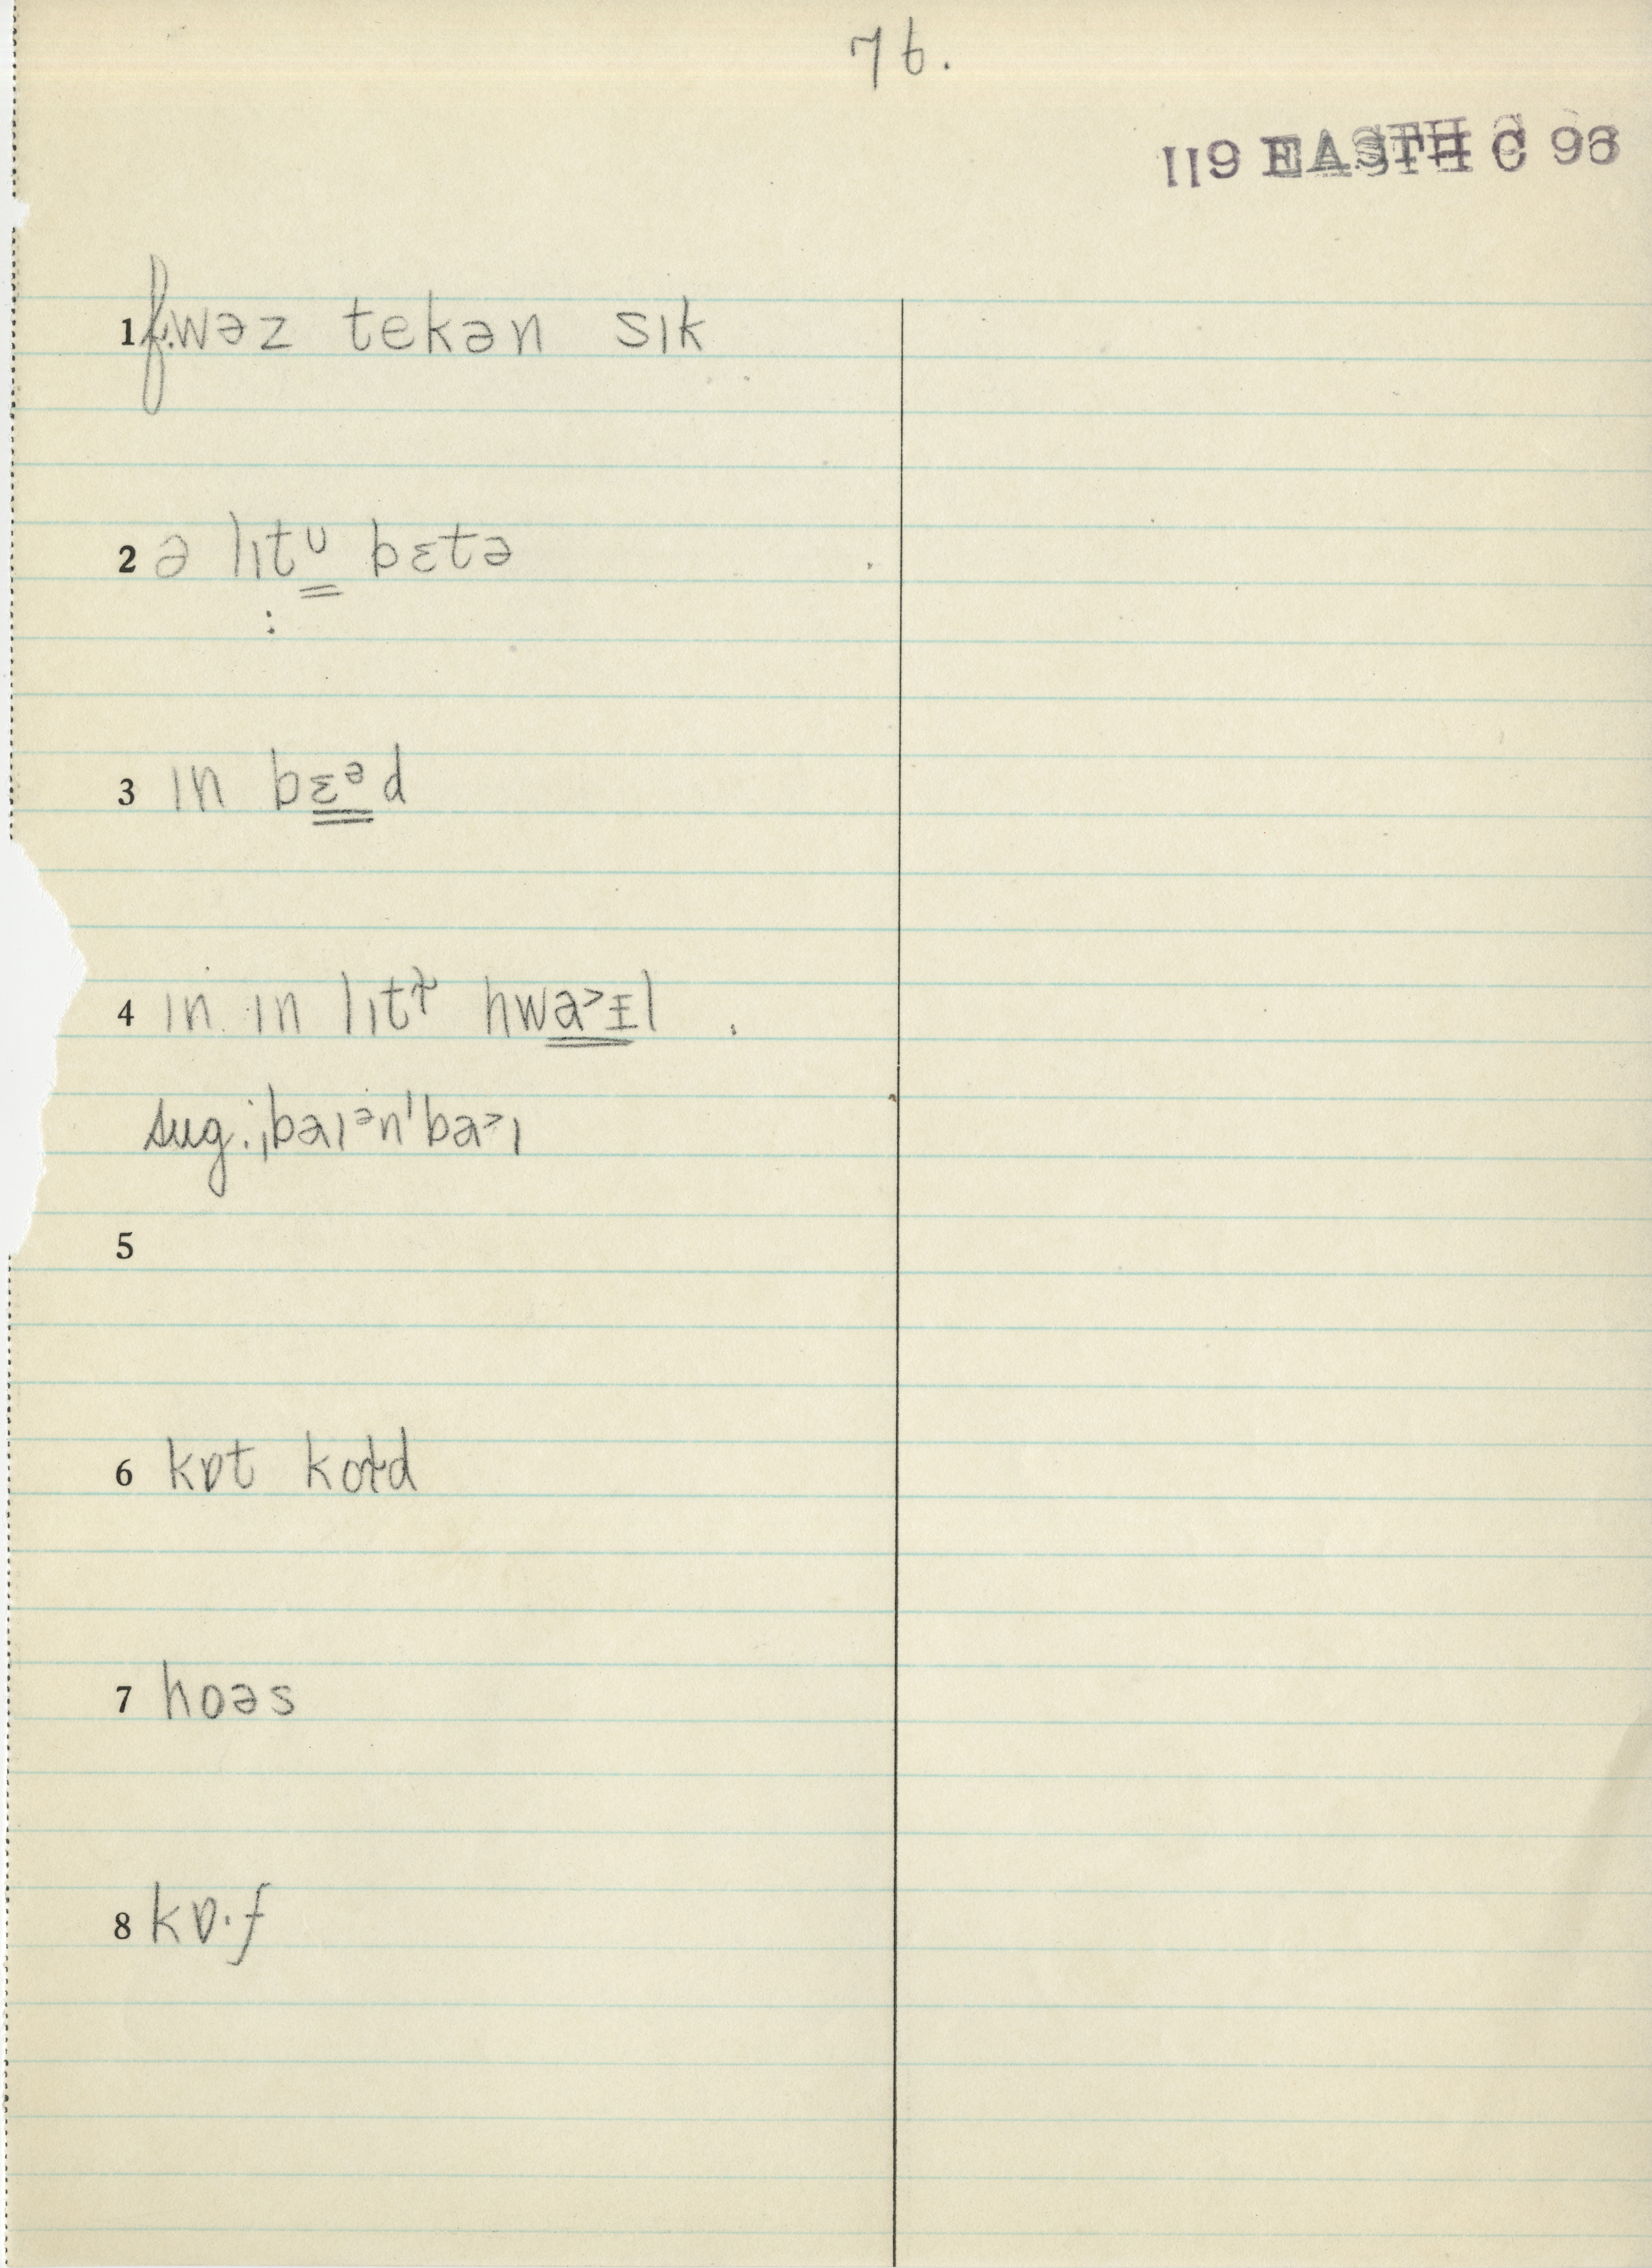 76.
119 EASTH C 96
1 f. wəz tekən sɪk
2 ə lɪtᶷ bɛtə
:
3 ɪn bɛᵊd
4 ɪn ɪn lɪtɫ hwa˃ᵻl .
sug. ˌbaɪᵊnˈba˃ɪ
5
6 kɒt koɫd
7 hoəs
8 kɒ·f